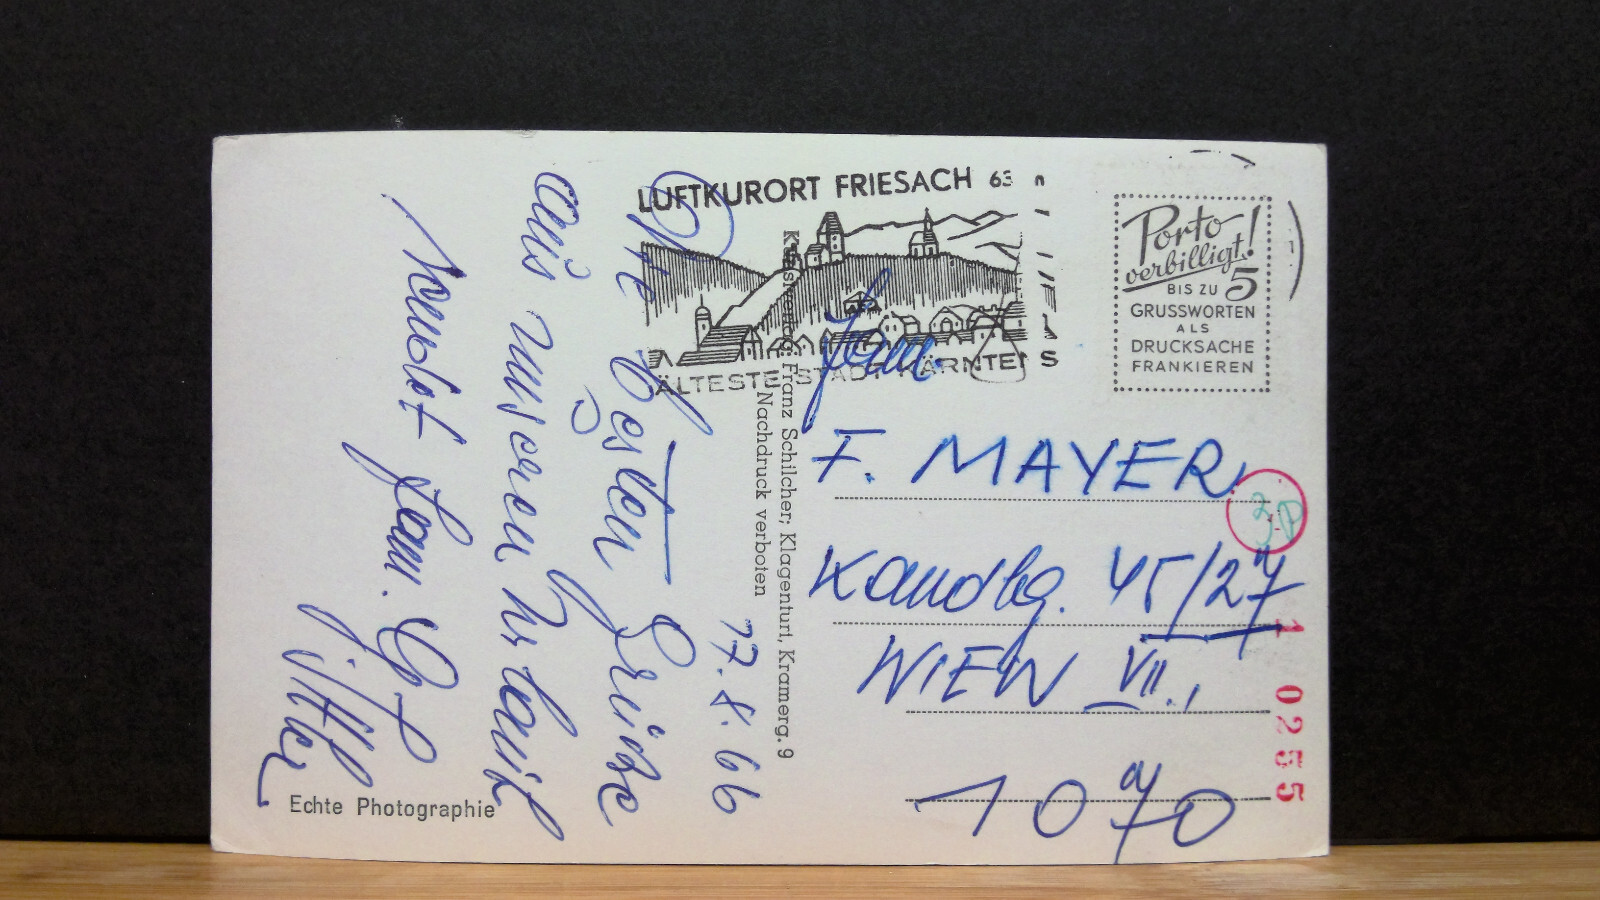 LUFTKURORT FRIESACH 63
ÄLTESTE STADT KÄRNTENS
Porto
verbilligt!
BIS ZU 5
GRUSSWORTEN
ALS
DRUCKSACHE
FRANKIEREN
Fam.
F. MAYER
Kandlg. 45/27
WIEN VII.,
1070
1 0255
Franz Schilcher; Klagenfurt, Kramerg. 9
Nachdruck verboten
17.8.66
Die besten Grüße
aus unserem Urlaub
Fam.
Echte Photographie